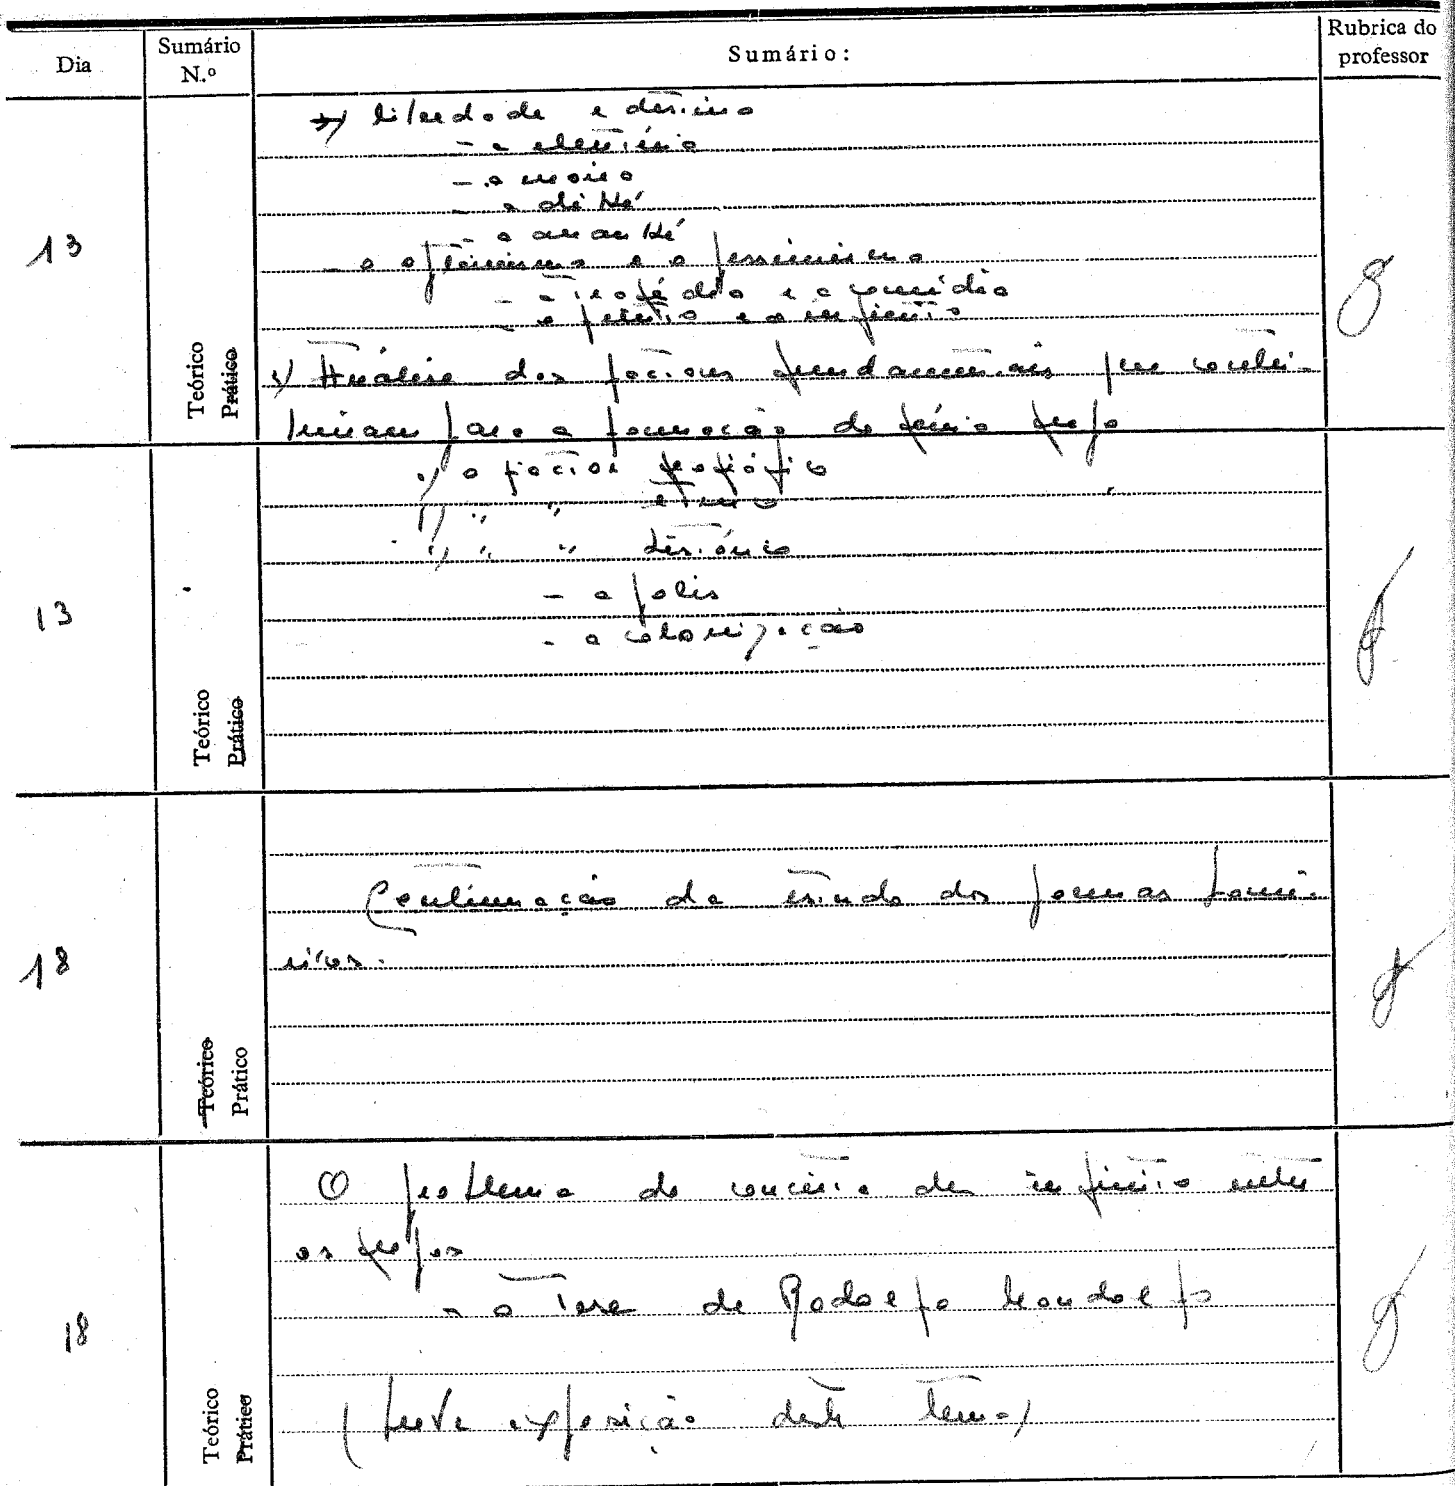 Dia
Sumário N.º
Sumário:
Rubrica do professor
13
Teórico
Prático
liberdade e destino
- a eleutéria
- a moira
- a diké
- a ananké
- o optimismo e o pessimismo
- a tragédia e a comédia
- o finito e o infinito
Análise dos factores fundamentais que contri-
buiram para a formação do génio grego
13
Teórico
Prático
o factor geográfico
" " étnico
" " histórico
- a polis
- a colonização
18
Teórico
Prático
Continuação do estudo das formas
18
Teórico
Prático
O problema do conceito de infinito entre
os gregos
- a tese de Rodolfo Mondolfo
(breve exposição deste tema)